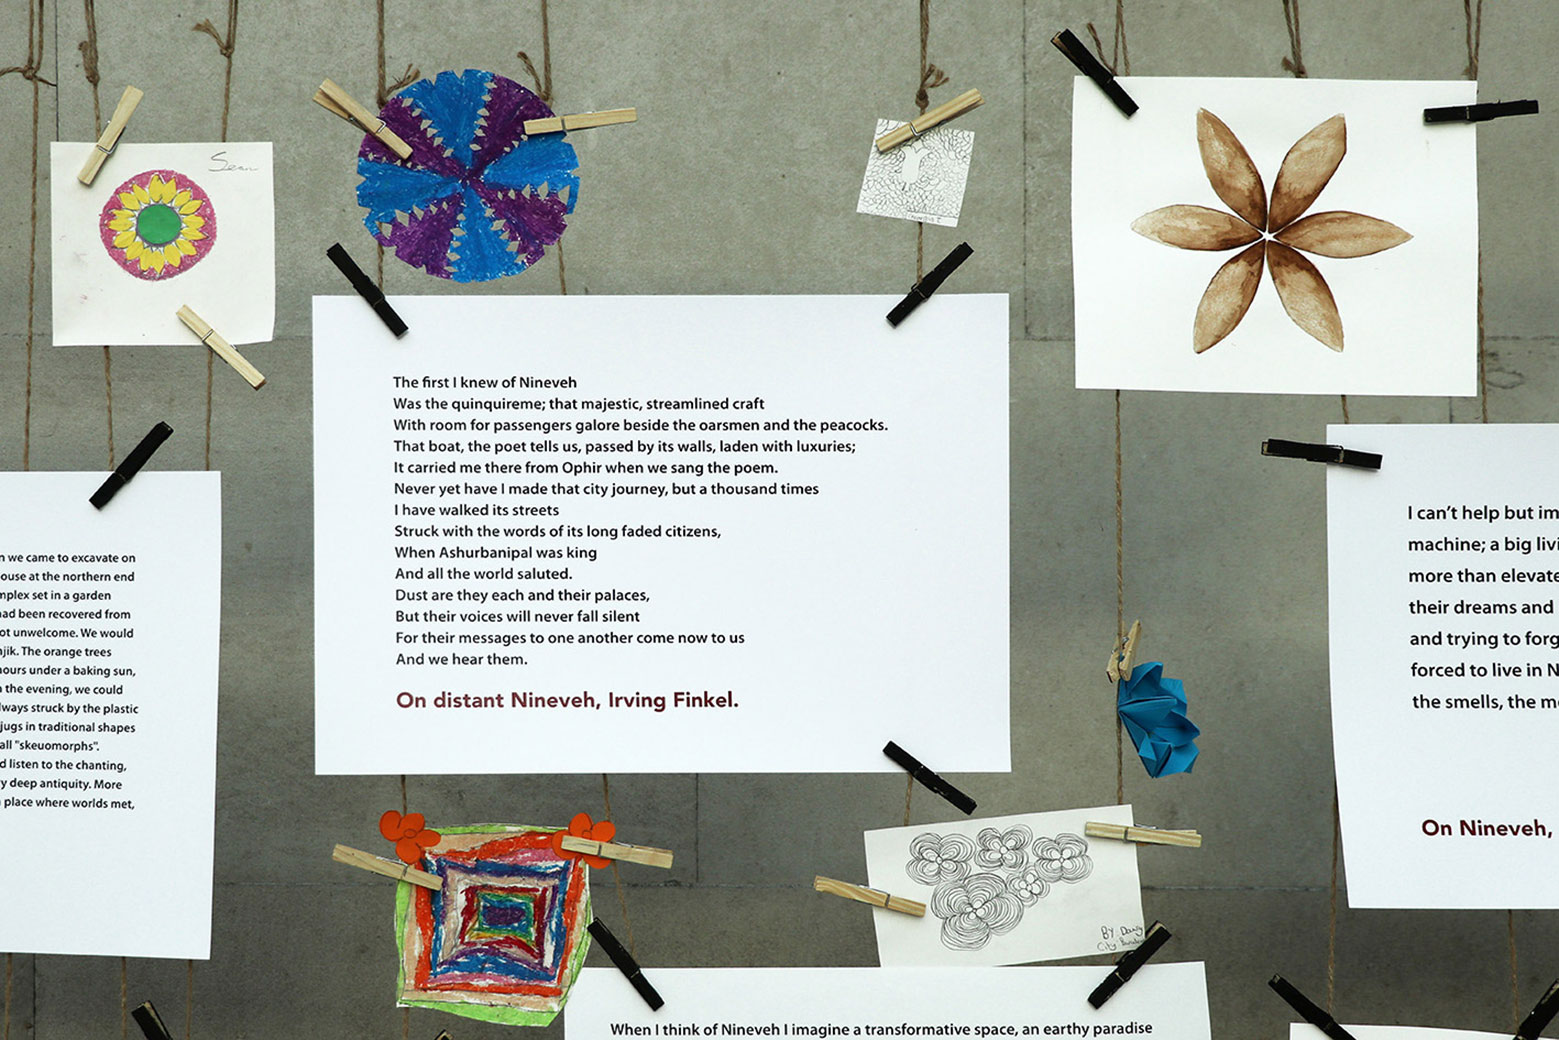 Sean
The first I knew of Nineveh
Was the quinquireme; that majestic, streamlined craft
With room for passengers galore beside the oarsmen and the peacocks.
That boat, the poet tells us, passed by its walls, laden with luxuries;
It carried me there from Ophir when we sang the poem.
Never yet have I made that city journey, but a thousand times
I have walked its streets
Struck with the words of its long faded citizens,
When Ashurbanipal was king
And all the world saluted.
Dust are they each and their palaces,
But their voices will never fall silent
For their messages to one another come now to us
And we hear them.
On distant Nineveh, Irving Finkel.
n we came to excavate on
ouse at the northern end
mplex set in a garden
had been recovered from
ot unwelcome. We would
njik. The orange trees
hours under a baking sun,
n the evening, we could
lways struck by the plastic
jugs in traditional shapes
all "skeuomorphs".
d listen to the chanting,
y deep antiquity. More
a place where worlds met,
I can't help but im
machine; a big livi
more than elevate
their dreams and
and trying to forg
forced to live in N
the smells, the m
On Nineveh,
BY
City
When I think of Nineveh I imagine a transformative space, an earthy paradise